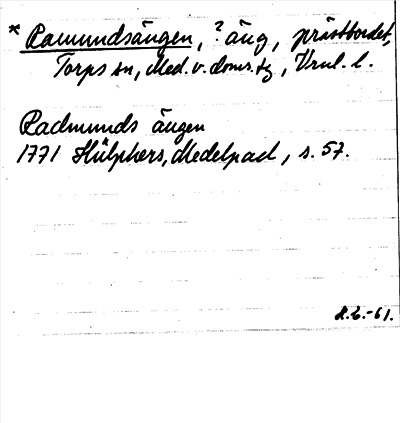 * Ramundsängen, ? äng, prästbordet,
Torps sn, Med. v. doms. tg, Vrnl. l.
Radmunds ängen
1771 Hülphers, Medelpad, s. 57.
-61.